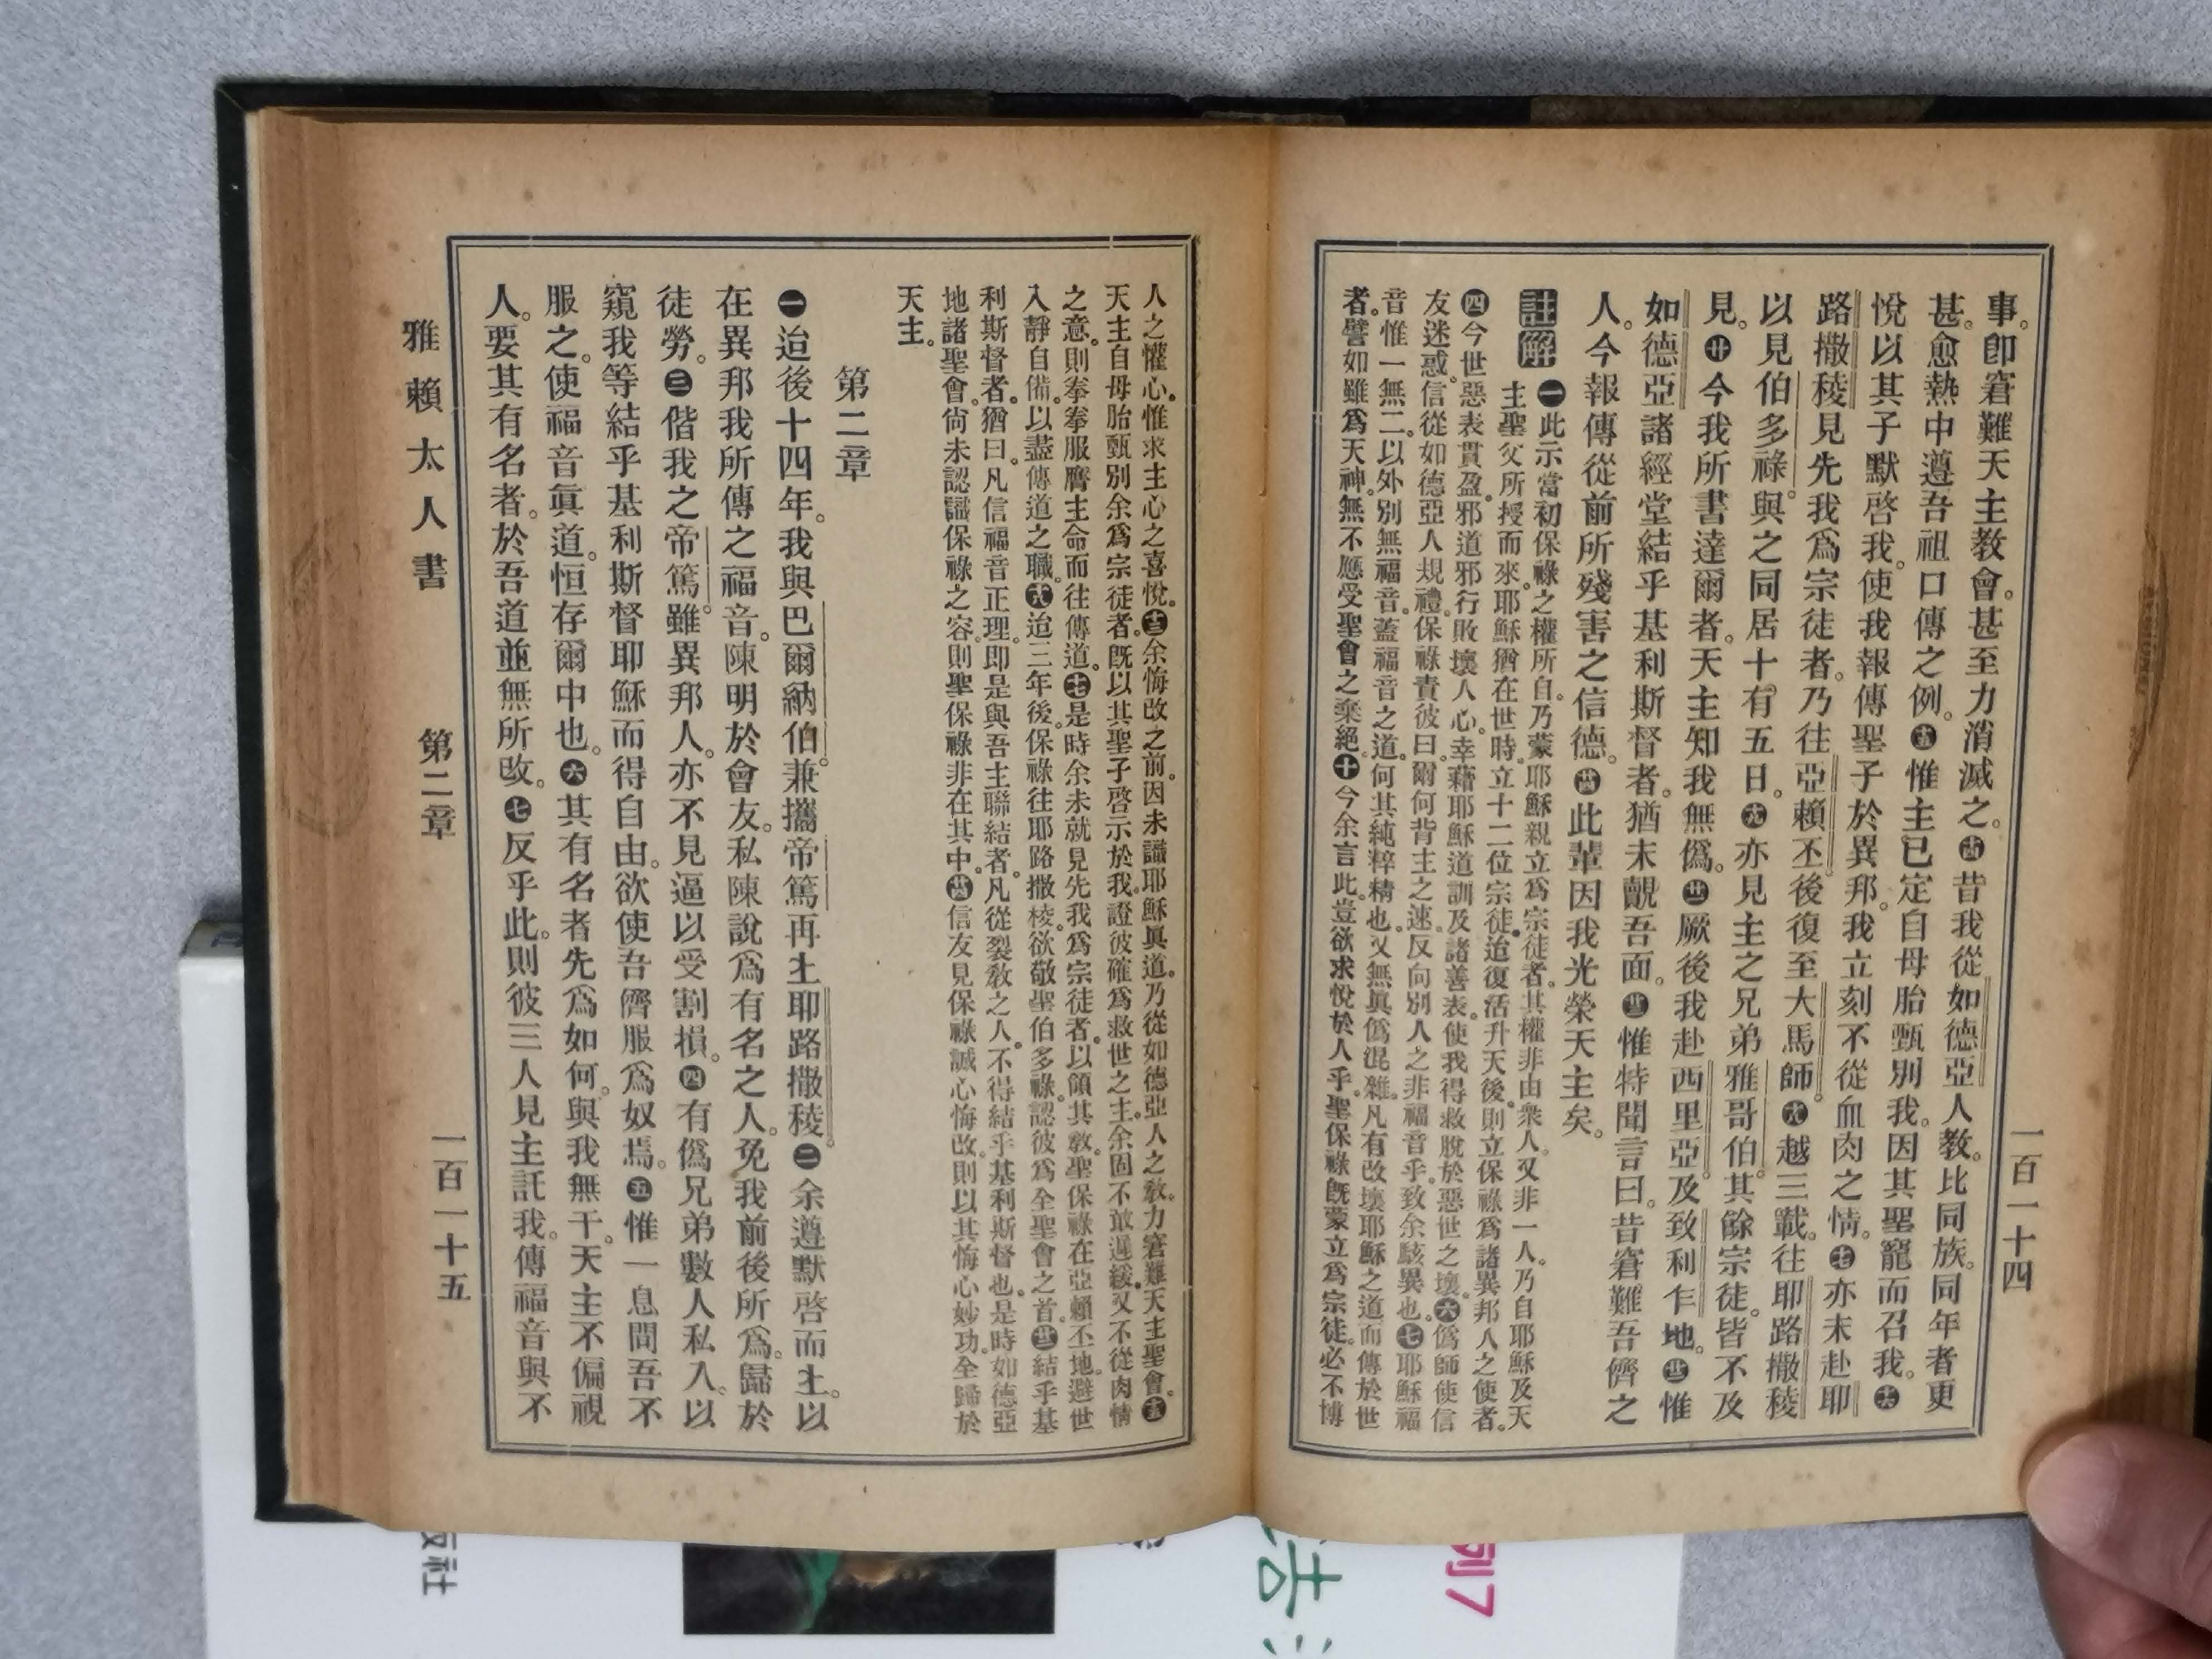 一百一十四
事。卽窘難天主敎會。甚至力消滅之。㊉四昔我從如德亞人敎。比同族。同年者更
甚。愈熱中遵吾祖口傳之例。㊉五惟主已定自母胎甄別我。因其聖寵而召我。㊉六
悅以其子默啓我。使我報傳聖子於異邦。我立刻不從血肉之情。㊉七亦未赴耶
路撒稜見先我爲宗徒者。乃往亞賴丕後復至大馬師。㊉八越三載。往耶路撒稜
以見伯多祿。與之同居十有五日。㊉九亦見主之兄弟雅哥伯。其餘宗徒。皆不及
見。㊉今我所書達爾者。天主知我無僞。廿一厥後我赴西里亞。及致利乍地。廿二惟
如德亞諸經堂結乎基利斯督者。猶未覿吾面。廿三惟特聞言曰。昔窘難吾儕之
人。今報傳從前所殘害之信德。廿四此輩因我光榮天主矣。
註解
一此示當初保祿之權所自。乃蒙耶穌親立爲宗徒者。其權非由衆人。又非一人。乃自耶穌及天
主聖父所授而來。耶穌猶在世時。立十二位宗徒。迨復活升天後。則立保祿爲諸異邦人之使者。
四今世惡表貫盈。邪道邪行敗壞人心。幸藉耶穌道訓及諸善表。使我得救脫於惡世之壞。六僞師使信
友迷惑。信從如德亞人規禮。保祿責彼曰。爾何背主之速。反向別人之非福音乎。致余駭異也。七耶穌福
音惟一無二。以外別無福音。蓋福音之道。何其純粹精也。又無眞僞混雜。凡有改壞耶穌之道而傳於世
者。譬如雖爲天神。無不應受聖會之棄絕。十今余言此。豈欲求悅於人乎。聖保祿旣蒙立爲宗徒。必不博
人之懽心。惟求主心之喜悅。十三余悔改之前。因未識耶穌眞道。乃從如德亞人之敎。力窘難天主聖會。十五
天主自母胎甄別余爲宗徒者。旣以其聖子啓示於我。證彼確爲救世之主。余固不敢遲緩。又不從肉情
之意。則拳拳服膺主命而往傳道。十七是時余未就見先我爲宗徒者。以領其敎。聖保祿在亞賴丕地。避世
入靜自備。以盡傳道之職。十八迨三年後。保祿往耶路撒稜。欲敬聖伯多祿。認彼爲全聖會之首。廿二結乎基
利斯督者。猶曰。凡信福音正理。卽是與吾主聯結者。凡從裂敎之人。不得結乎基利斯督也。是時如德亞
地諸聖會。尙未認識保祿之容。則聖保祿非在其中。廿四信友見保祿誠心悔改。則以其悔心妙功。全歸於
天主。
第二章
一迨後十四年。我與巴爾納伯。兼攜帝篤再上耶路撒稜。二余遵默啓而上。以
在異邦我所傳之福音。陳明於會友。私陳說爲有名之人。免我前後所爲。歸於
徒勞。三偕我之帝篤。雖異邦人。亦不見逼以受割損。四有僞兄弟數人私入。以
窺我等結乎基利斯督耶穌而得自由。欲使吾儕服爲奴焉。五惟一息間吾不
服之。使福音眞道。恒存爾中也。六其有名者先爲如何。與我無干。天主不偏視
人。要其有名者。於吾道並無所改。七反乎此。則彼三人見主託我。傳福音與不
雅賴太人書
第二章
一百一十五
社
列7